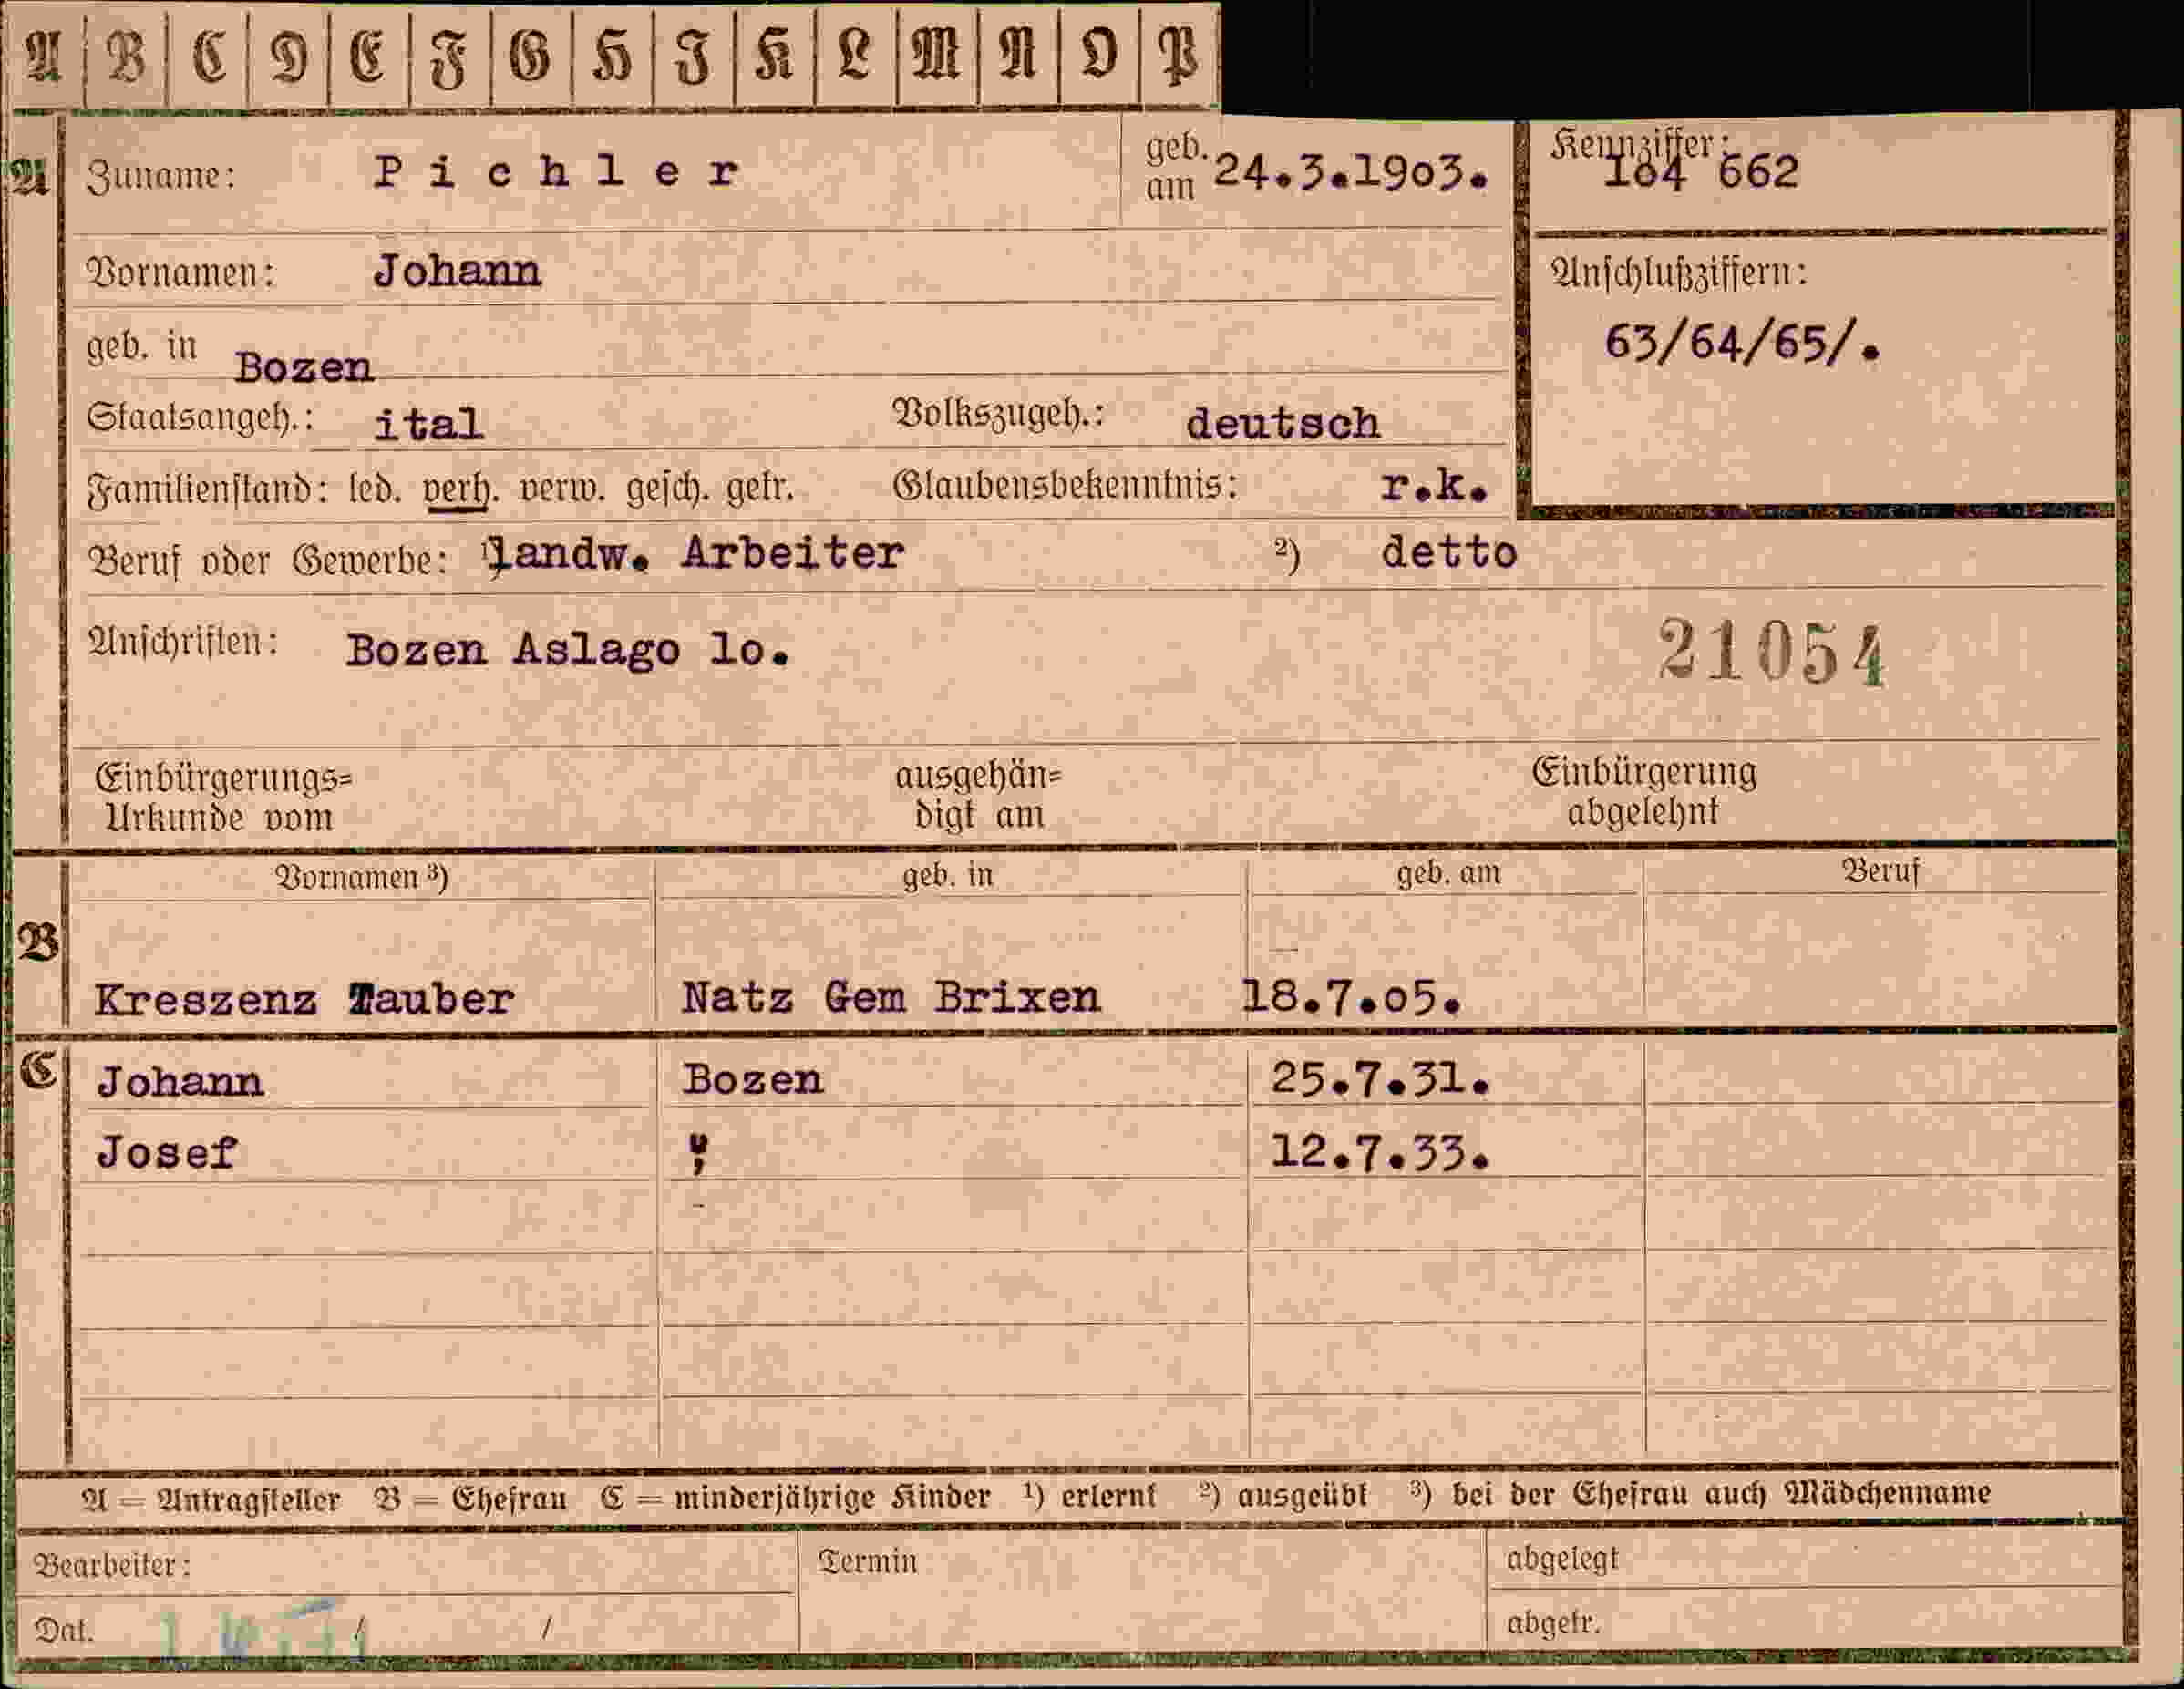 A B C D E F G H I K L M N O P
A Zuname: Pichler geb. am 24.3.19o3. Kennziffer: 184 662
Vornamen: Johann Anschlußziffern:
geb. in Bozen 63/64/65/.
Staatsangeh.: ital Volkszugeh.: deutsch
Familienstand: led. verh. verw. gesch. getr. Glaubensbekenntnis: r.k.
Beruf oder Gewerbe: ¹) landw. Arbeiter ²) detto
Anschriften: Bozen Aslago lo. 21054
Einbürgerungs= ausgehän= Einbürgerung
Urkunde vom digt am abgelehnt
Vornamen ³) geb. in geb. am Beruf
B
Kreszenz Tauber Natz Gem Brixen 18.7.o5.
C Johann Bozen 25.7.31.
Josef " 12.7.33.
A = Antragsteller B = Ehefrau C = minderjährige Kinder ¹) erlernt ²) ausgeübt ³) bei der Ehefrau auch Mädchenname
Bearbeiter: Termin abgelegt
Dat. / / abgetr.